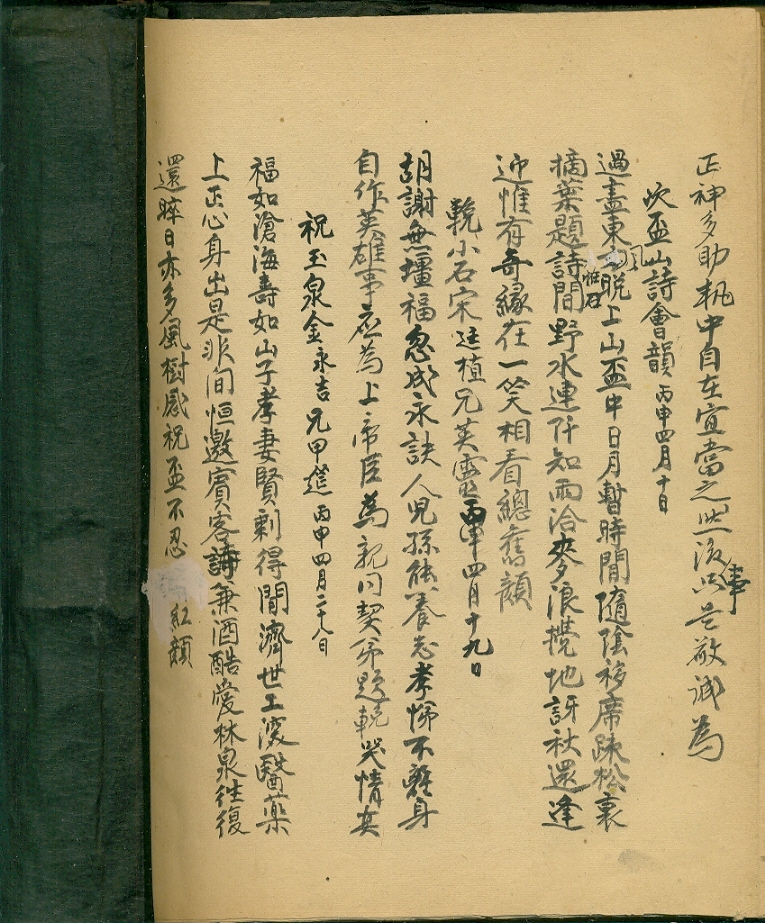 正神多助執中自在宜當之照後只是敬誠為
事
次盃山詩會韻 丙申四月十日
過盡東風晚上山盃中日月暫時閒隨陰移席疎松裏
摘葉題詩間野水連阡知雨洽麥浪攪地訝秋還逢
迎惟有奇緣在一笑相看總舊顏
輓小石宋廷植兄英靈 丙申四月十九日
胡謝無壃福忽成永訣人兒孫能養志孝悌不離身
自作英雄事應為上帝臣為親同契弟題輓哭情真
祝玉泉金永吉兄甲筵 丙申四月二十八日
福如滄海壽如山子孝妻賢剩得閒濟世工深醫藥
上正心身出是非間恒邀賓客詩兼酒酷愛林泉往復
還晬日亦多風樹感祝盃不忍 紅顏